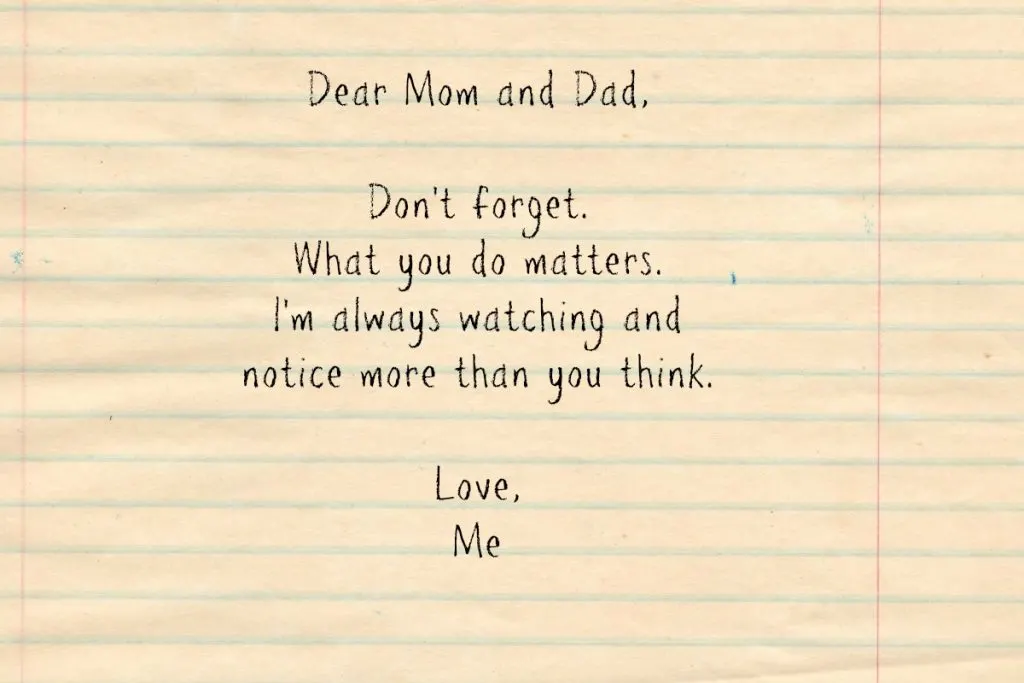 Dear Mom and Dad,
Don't forget.
What you do matters.
I'm always watching and
notice more than you think.
Love,
Me